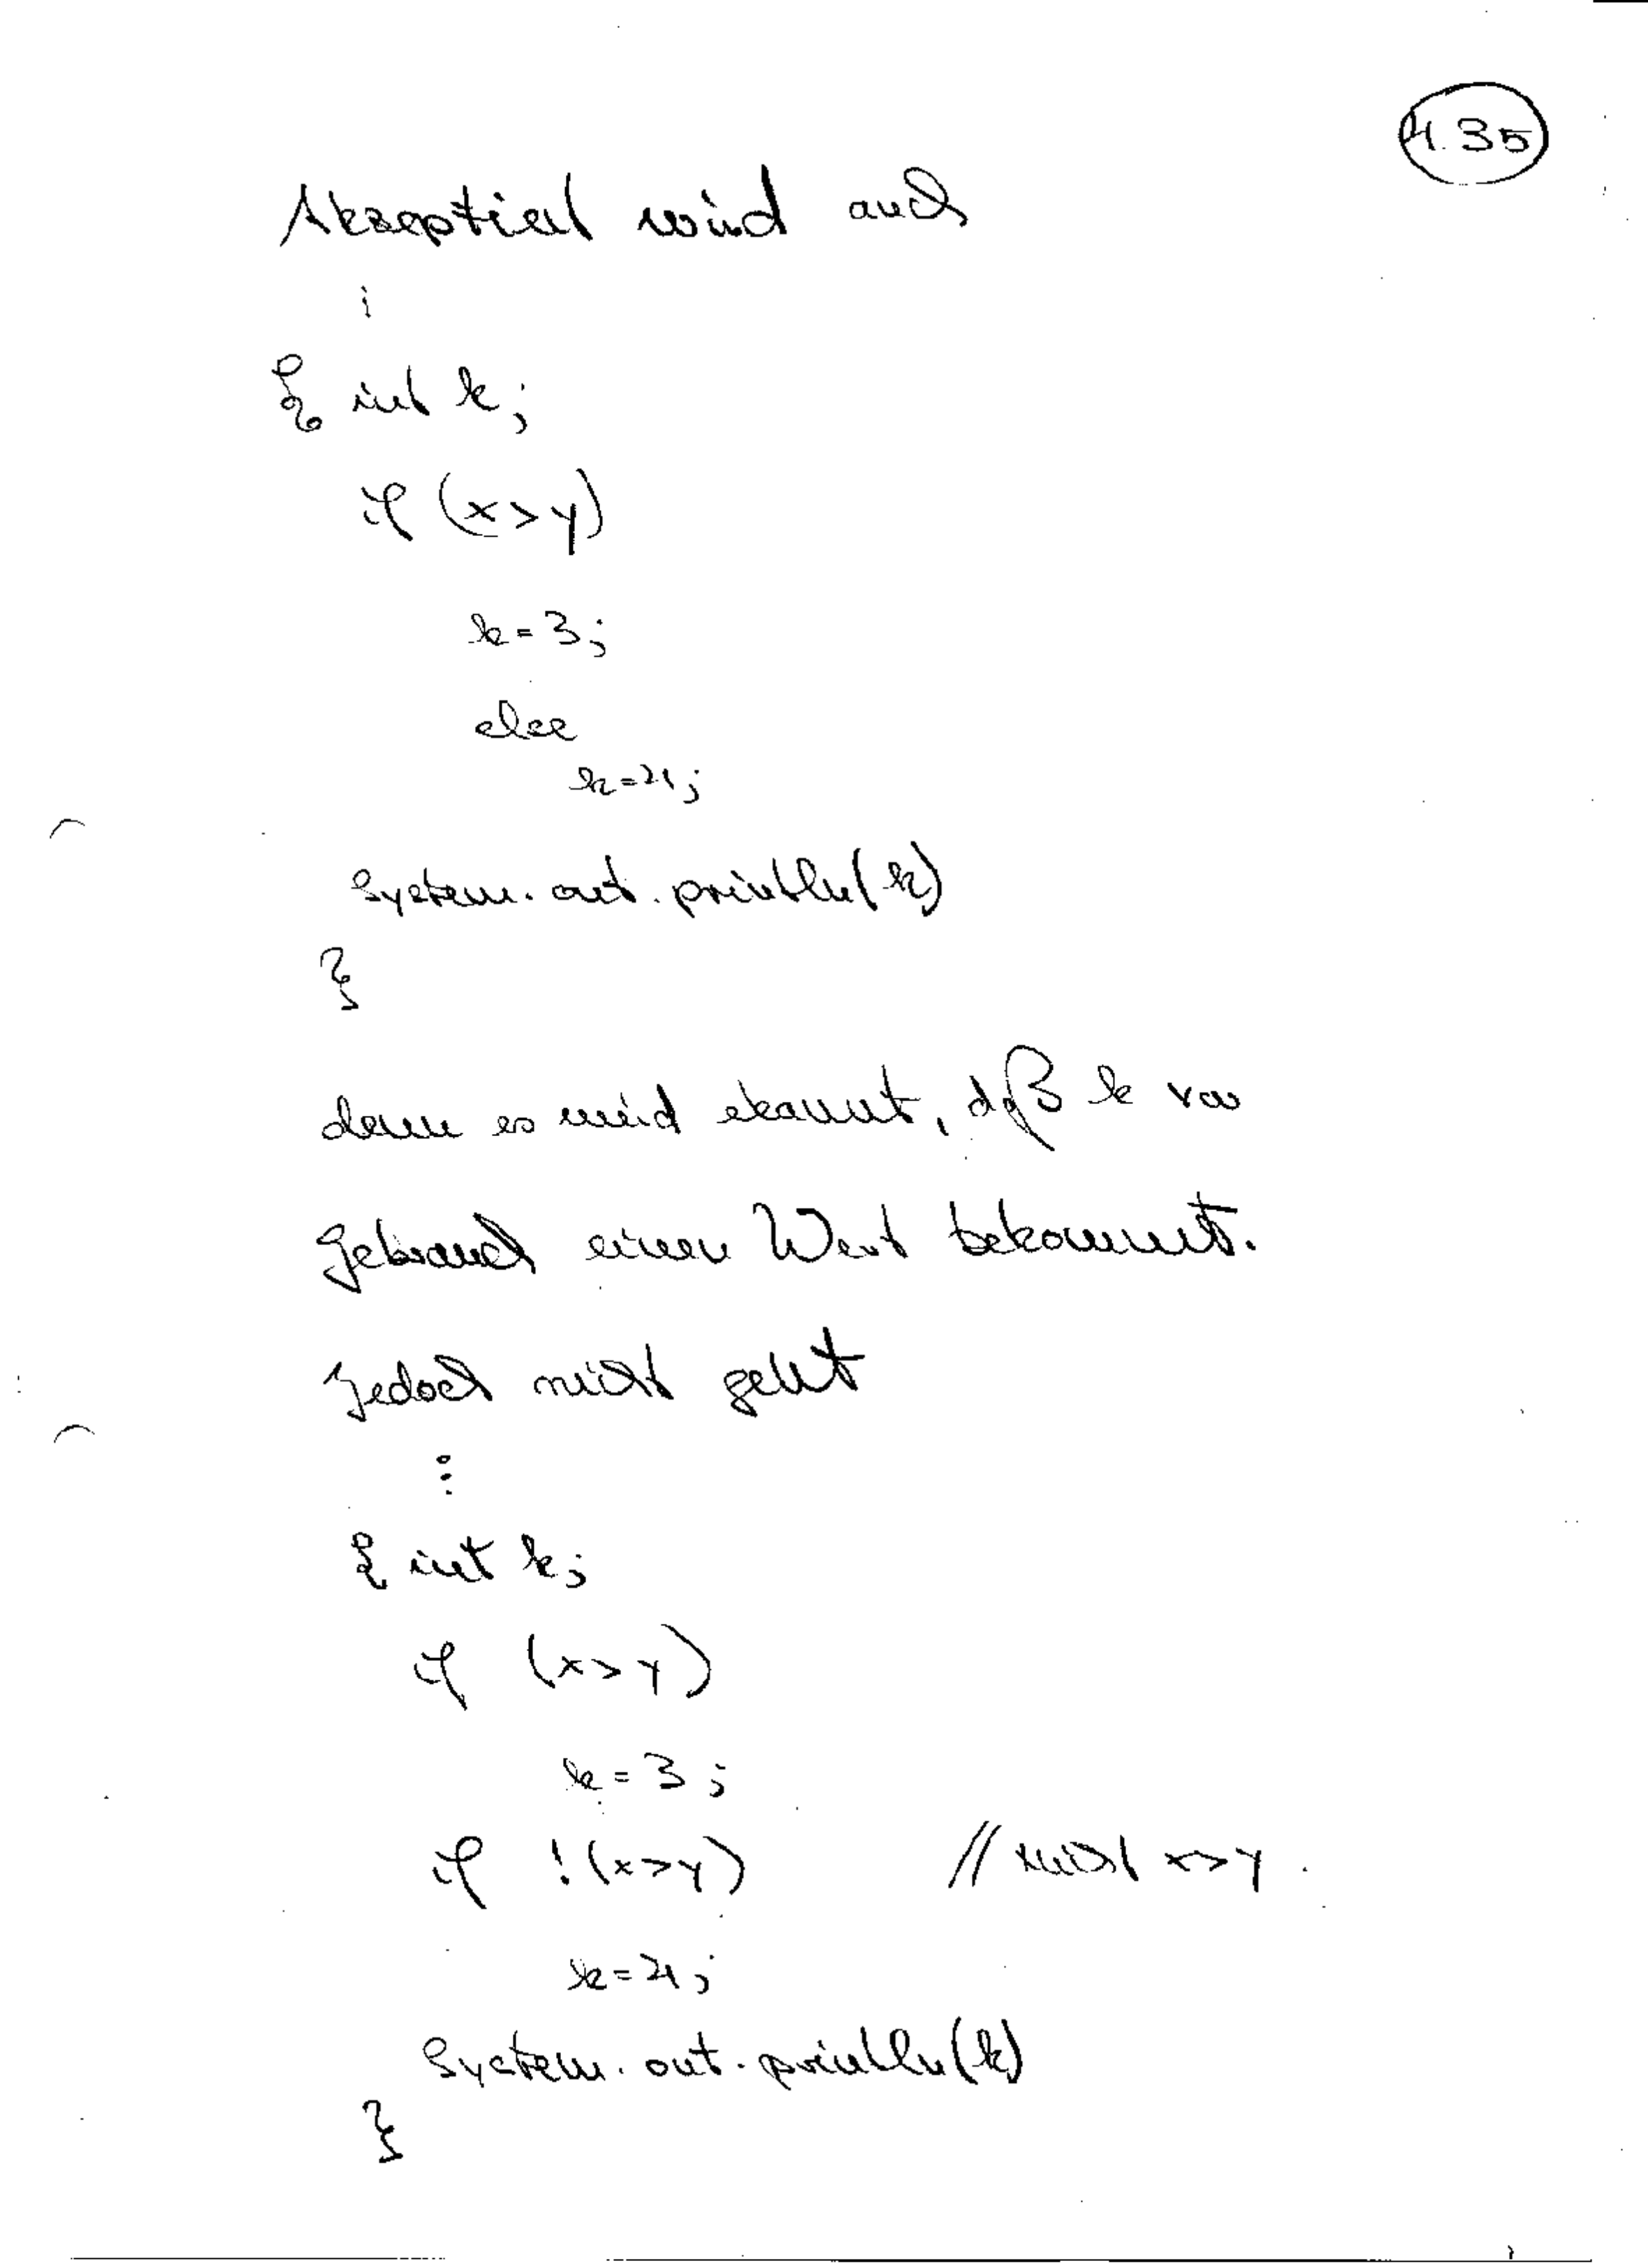 4.35
Akzeptiert wird auch
⋮
{ int k;
if (x>y)
k=3;
else
k=4;
System.out.println(k)
}
denn es wird erkannt, daß k vor
Gebrauch einen Wert bekommt.
Jedoch nicht geht
⋮
{ int k;
if (x>y)
k=3;
if !(x>y) // nicht x>y.
k=4;
System.out.println(k)
}